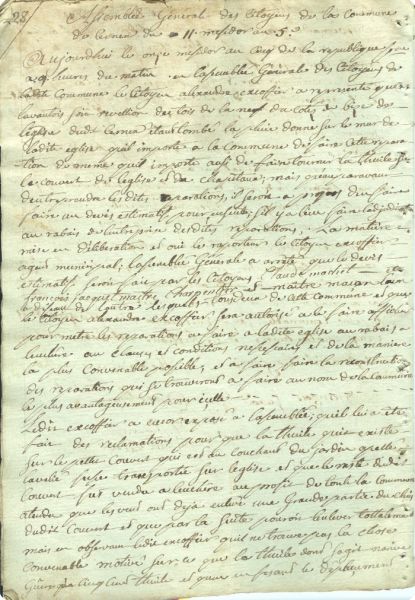 28
Assemblée Général des Citoyens de la Commune
de Cernex du 11 messidor an 5e
Aujourdhui le onze messidor an cinq de la republique
a 9 heures du matin en lassemblée Générale des Citoyens de
ladite Commune le Citoyen alexandre excoffier a representé que
la nef du coté de bise de
leglise dudit Cernex étant tombé la pluie donne sur le mur de
ladite eglise quil importe a la commune de faire cette repara
tion de même quil importe aussi de faire tourner la thuile sur
le couvert de leglise et du ; mais quau paravant
dentreprendre lesdites reparations, il seroit a propos den faire
faire un devis estimatif pour ensuite, sil y a lieu faire ladjudication
au rabais de lentreprise desdites reparations. La matiere
mise en deliberation et oui le raporteur le citoyen excoffier
agent municipal; lassemblée Generale a arreté que le devis
estimatif seroit fait par les Citoyens Claude
françois jacquet maitre charpentier et maitre masson
lesquels tous deux de cette commune et que
le citoyen alexandre excoffier sera autorisé a le faire afficher
pour mettre les reparations a faire a ladite eglise au rabais a
lenchere aux clauses et conditions nécessaires et de la maniere
la plus convenable possible; et a faire faire la reconstruction
des reparations qui se trouveront a faire au nom de la commune
le plus avantageusement pour icelle
ledit excoffier a encor exposé a lassemblée, quil lui a été
fait des reclamations pour que la thuile qui existe
sur le petit couvert qui est au couchant du jardin
la ville fusse transportée sur leglise et que le reste dudit
couvert fut vendu a lenchere au profit de toute la commune
atendu que les vents ont deja enlevé une Grande partie du
dudit couvert et que par la suite pourroit lenlever totallement
mais en observant ledit excoffier quil ne trouve pas la chose
convenable motivé sur ce que la thuile dont sagit
que cinq cent thuile et quen en fesant le deplacement